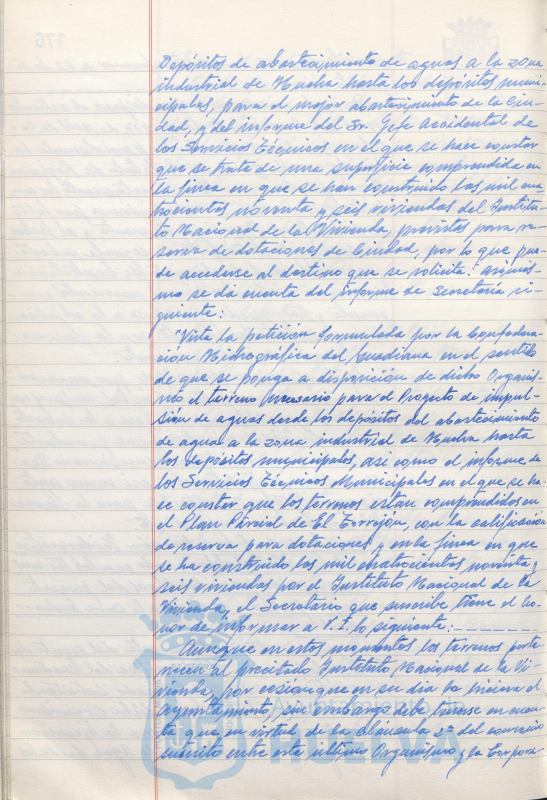 Depósitos de abastecimiento de aguas a la zona
industrial de Huelva hasta los depósitos muni-
cipales, para el mejor abastecimiento de la Ciu-
dad, y del informe del Sr. Jefe Accidental de
los Servicios Técnicos en el que se hace constar
que se trata de una superficie comprendida en
la finca en que se han construido las mil cua
trocientas noventa y seis viviendas del Institu-
to Nacional de la Vivienda, previstos para re-
serva de dotaciones de Ciudad, por lo que pue-
de accederse al destino que se solicita. Asimis-
mo se dá cuenta del informe de Secretaría si-
guiente:
"Vista la petición formulada por la Confedera-
ción Hidrográfica del Guadiana en el sentido
de que se ponga a disposición de dicho Organis-
mo el terreno necesario para el Proyecto de impul-
sión de aguas desde los depósitos del abastecimiento
de aguas a la zona industrial de Huelva hasta
los depósitos municipales, asi como el informe de
los Servicios Técnicos Municipales en el que se ha
ce constar que los terrenos estan comprendidos en
el Plan Parcial de El Torrejon, con la calificación
de reserva para dotaciones y en la finca en que
se ha construido las mil cuatrocientas noventa y
seis viviendas por el Instituto Nacional de la
Vivienda, el Secretario que suscribe tiene el ho-
nor de informar a V.I. lo siguiente:
Aunque en estos momentos los terrenos perte
necen al precitado Instituto Nacional de la Vi-
vienda, por cesion que en su dia lo hiciera el
Ayuntamiento, sin embargo debe tenerse en cuen-
ta que en virtud de la cláusula 2ª del convenio
suscrito entre este ultimo Organismo y la Corpora-
HUELVA
176